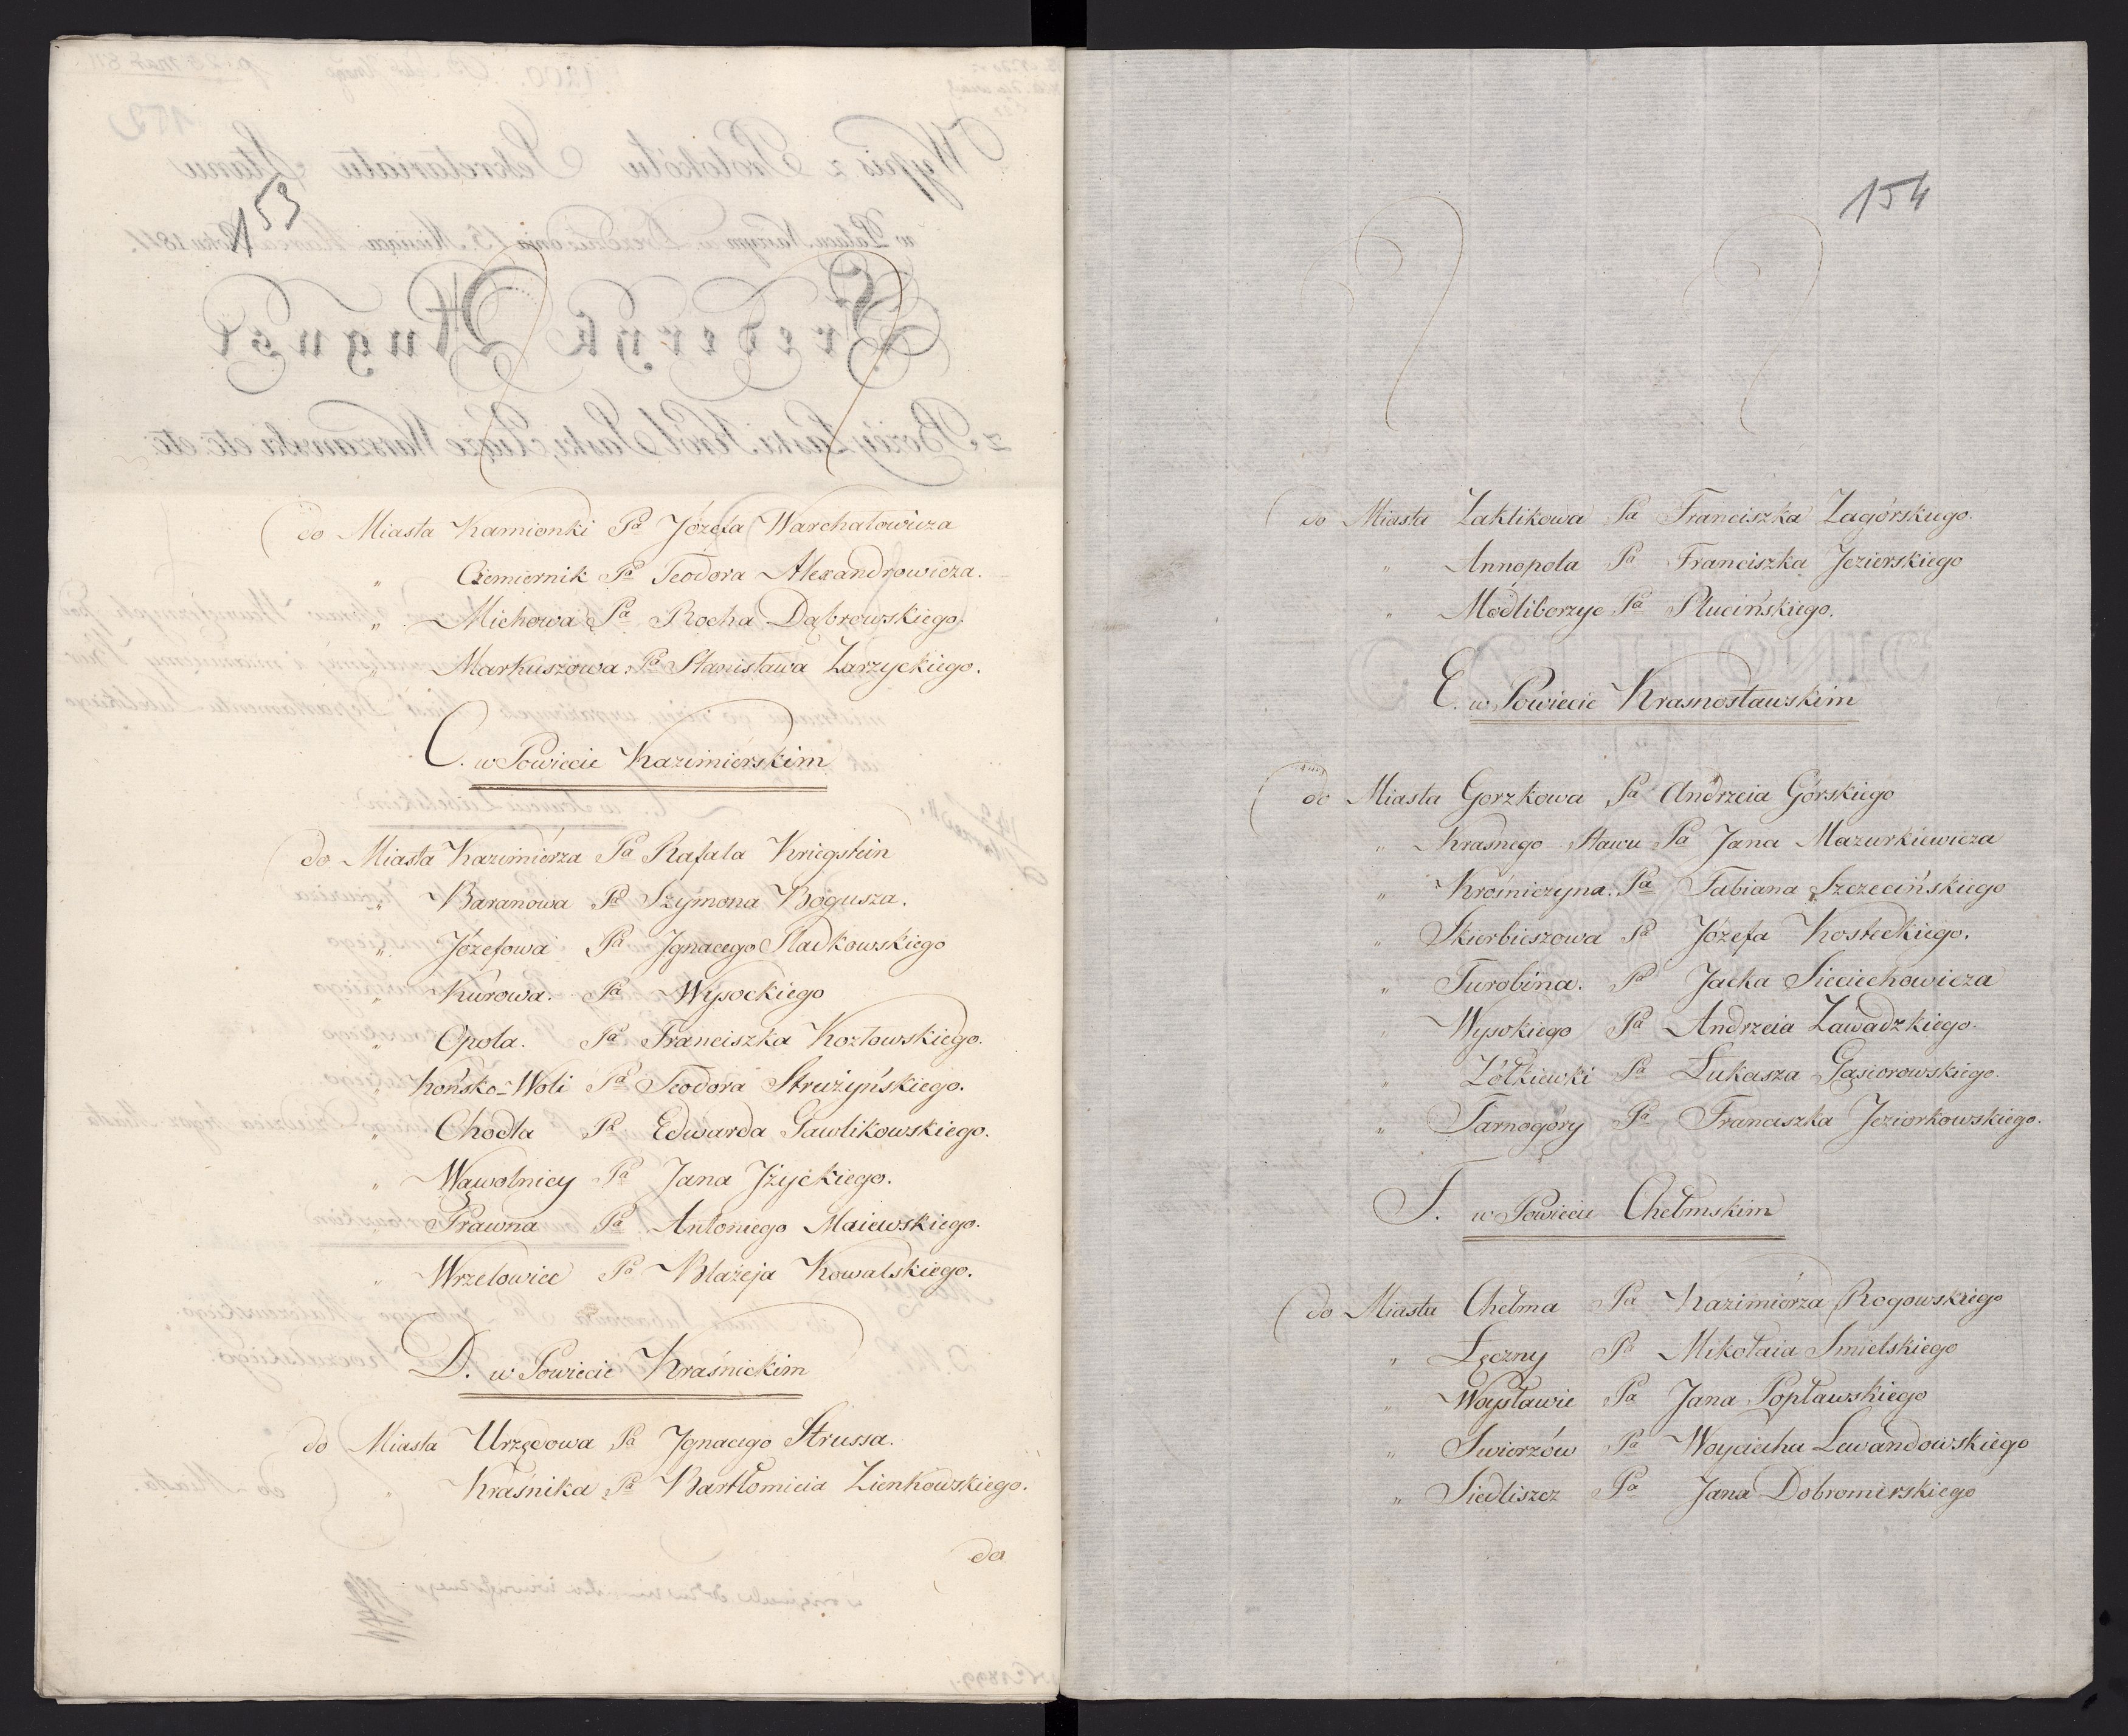 153
do Miasta Kamionki Pa Józefa Warchałowicza
" Czemiernik Pa Teodora Alexandrowicza.
" Michowa Pa Rocha Dąbrowskiego.
" Markuszowa. Pa Stanisława Zarzyckiego.
C. w Powiecie Kazimiérskim
do Miasta Kazimiérza Pa Rafała Kriegstein
" Baranowa Pa Szymona Bogusza.
" Józefowa Pa Jgnacego Sladkowskiego
" Kurowa. Pa Wysockiego
" Opola. Pa Franciszka Kozłowskiego.
" Końsko-Woli Pa Teodora Strużyńskiego.
" Chodla Pa Edwarda Gawlikowskiego.
" Wąwolnicy Pa Jana Jżyckiego.
Prawna Pa Antoniego Maiewskiego.
" Wrzelowiec Pa Błażeja Kowalskiego.
D. w Powiecie Kraśnickim
do Miasta Urzędowa Pa Jgnacego Strussa.
" Kraśnika Pa Bartłomieia Zienkowskiego.
do
154
do Miasta Zaklikowa Pa Franciszka Zagórskiego.
" Annopola Pa Franciszka Jezierskiego
" Modliborzyc Pa Plucińskiego.
E. w Powiecie Krasnostawskim
do Miasta Gorzkowa Pa Andrzeia Górskiego
" Krasnego Stawu Pa Jana Mazurkiewicza
" Krośniczyna. Pa Fabiana Szczecińskiego
" Skierbieszowa Pa Józefa Kosteckiego.
" Turobina. Pa Jacka Sieciechowicza
" Wysokiego Pa Andrzeia Zawadzkiego.
" Żółkiewki Pa Łukasza Gąsiorowskiego.
" Tarnogóry Pa Franciszka Jeziorkowskiego.
F. w Powiecie Chełmskim
do Miasta Chełma Pa Kazimiérza Rogowskiego
" Łęczny Pa Mikołaia Smielskiego
" Woysławic Pa Jana Popławskiego
" Swierzów Pa Woyciecha Lewandowskiego
" Siedliszcz Pa Jana Dobromirskiego